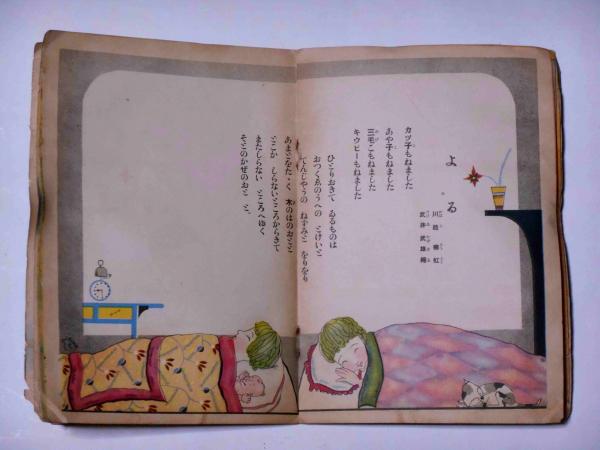 よる
川路柳虹
武井武雄繪
カツ子もねました
あや子もねました
三毛こもねました
キウピーもねました
ひとりおきて ゐるものは
おつくゑのうへの とけいと
てんじやうの ねずみと をりをり
あまどをたゝく 木のはのおとと
どこか しらないところからきて
またしらない ところへゆく
そとのかぜのおと と。